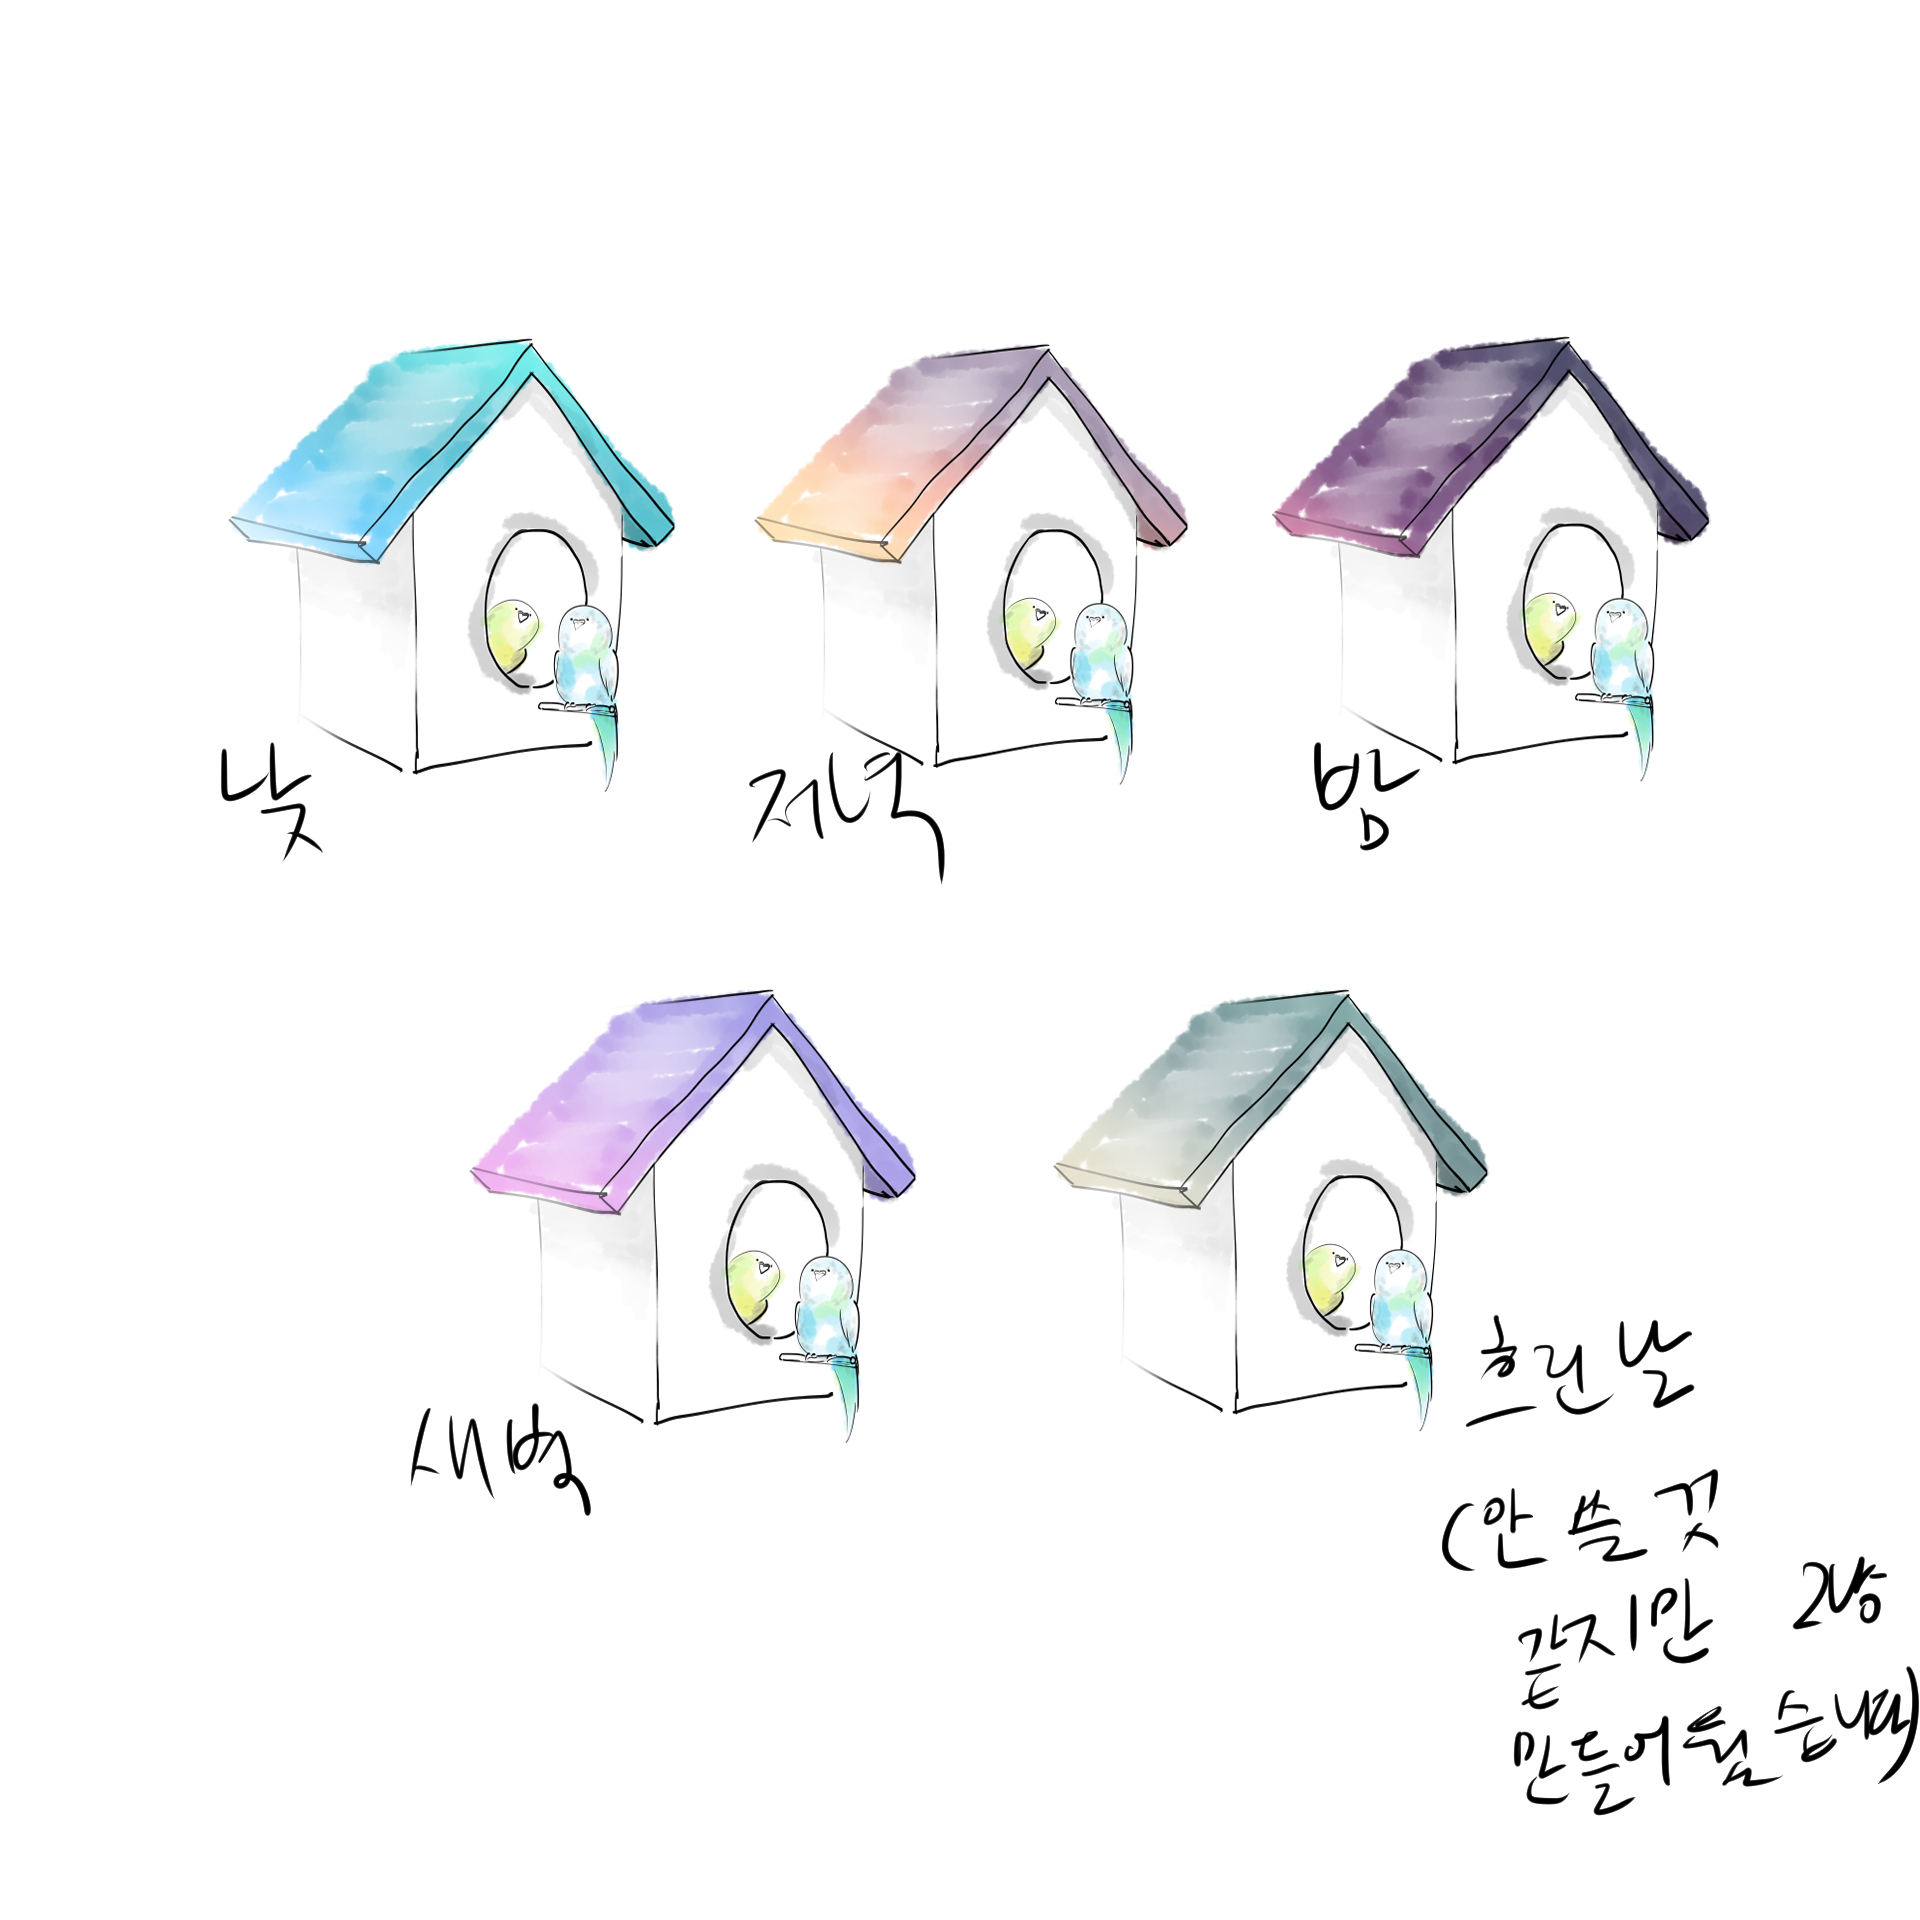 낮
저녁
밤
새벽
흐린 날
(안 쓸 것
같지만 그냥
만들어뒀습니다)